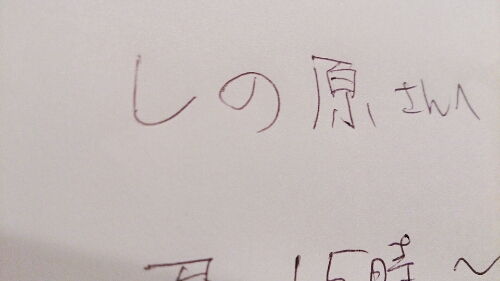 しの原さんへ
15時〜